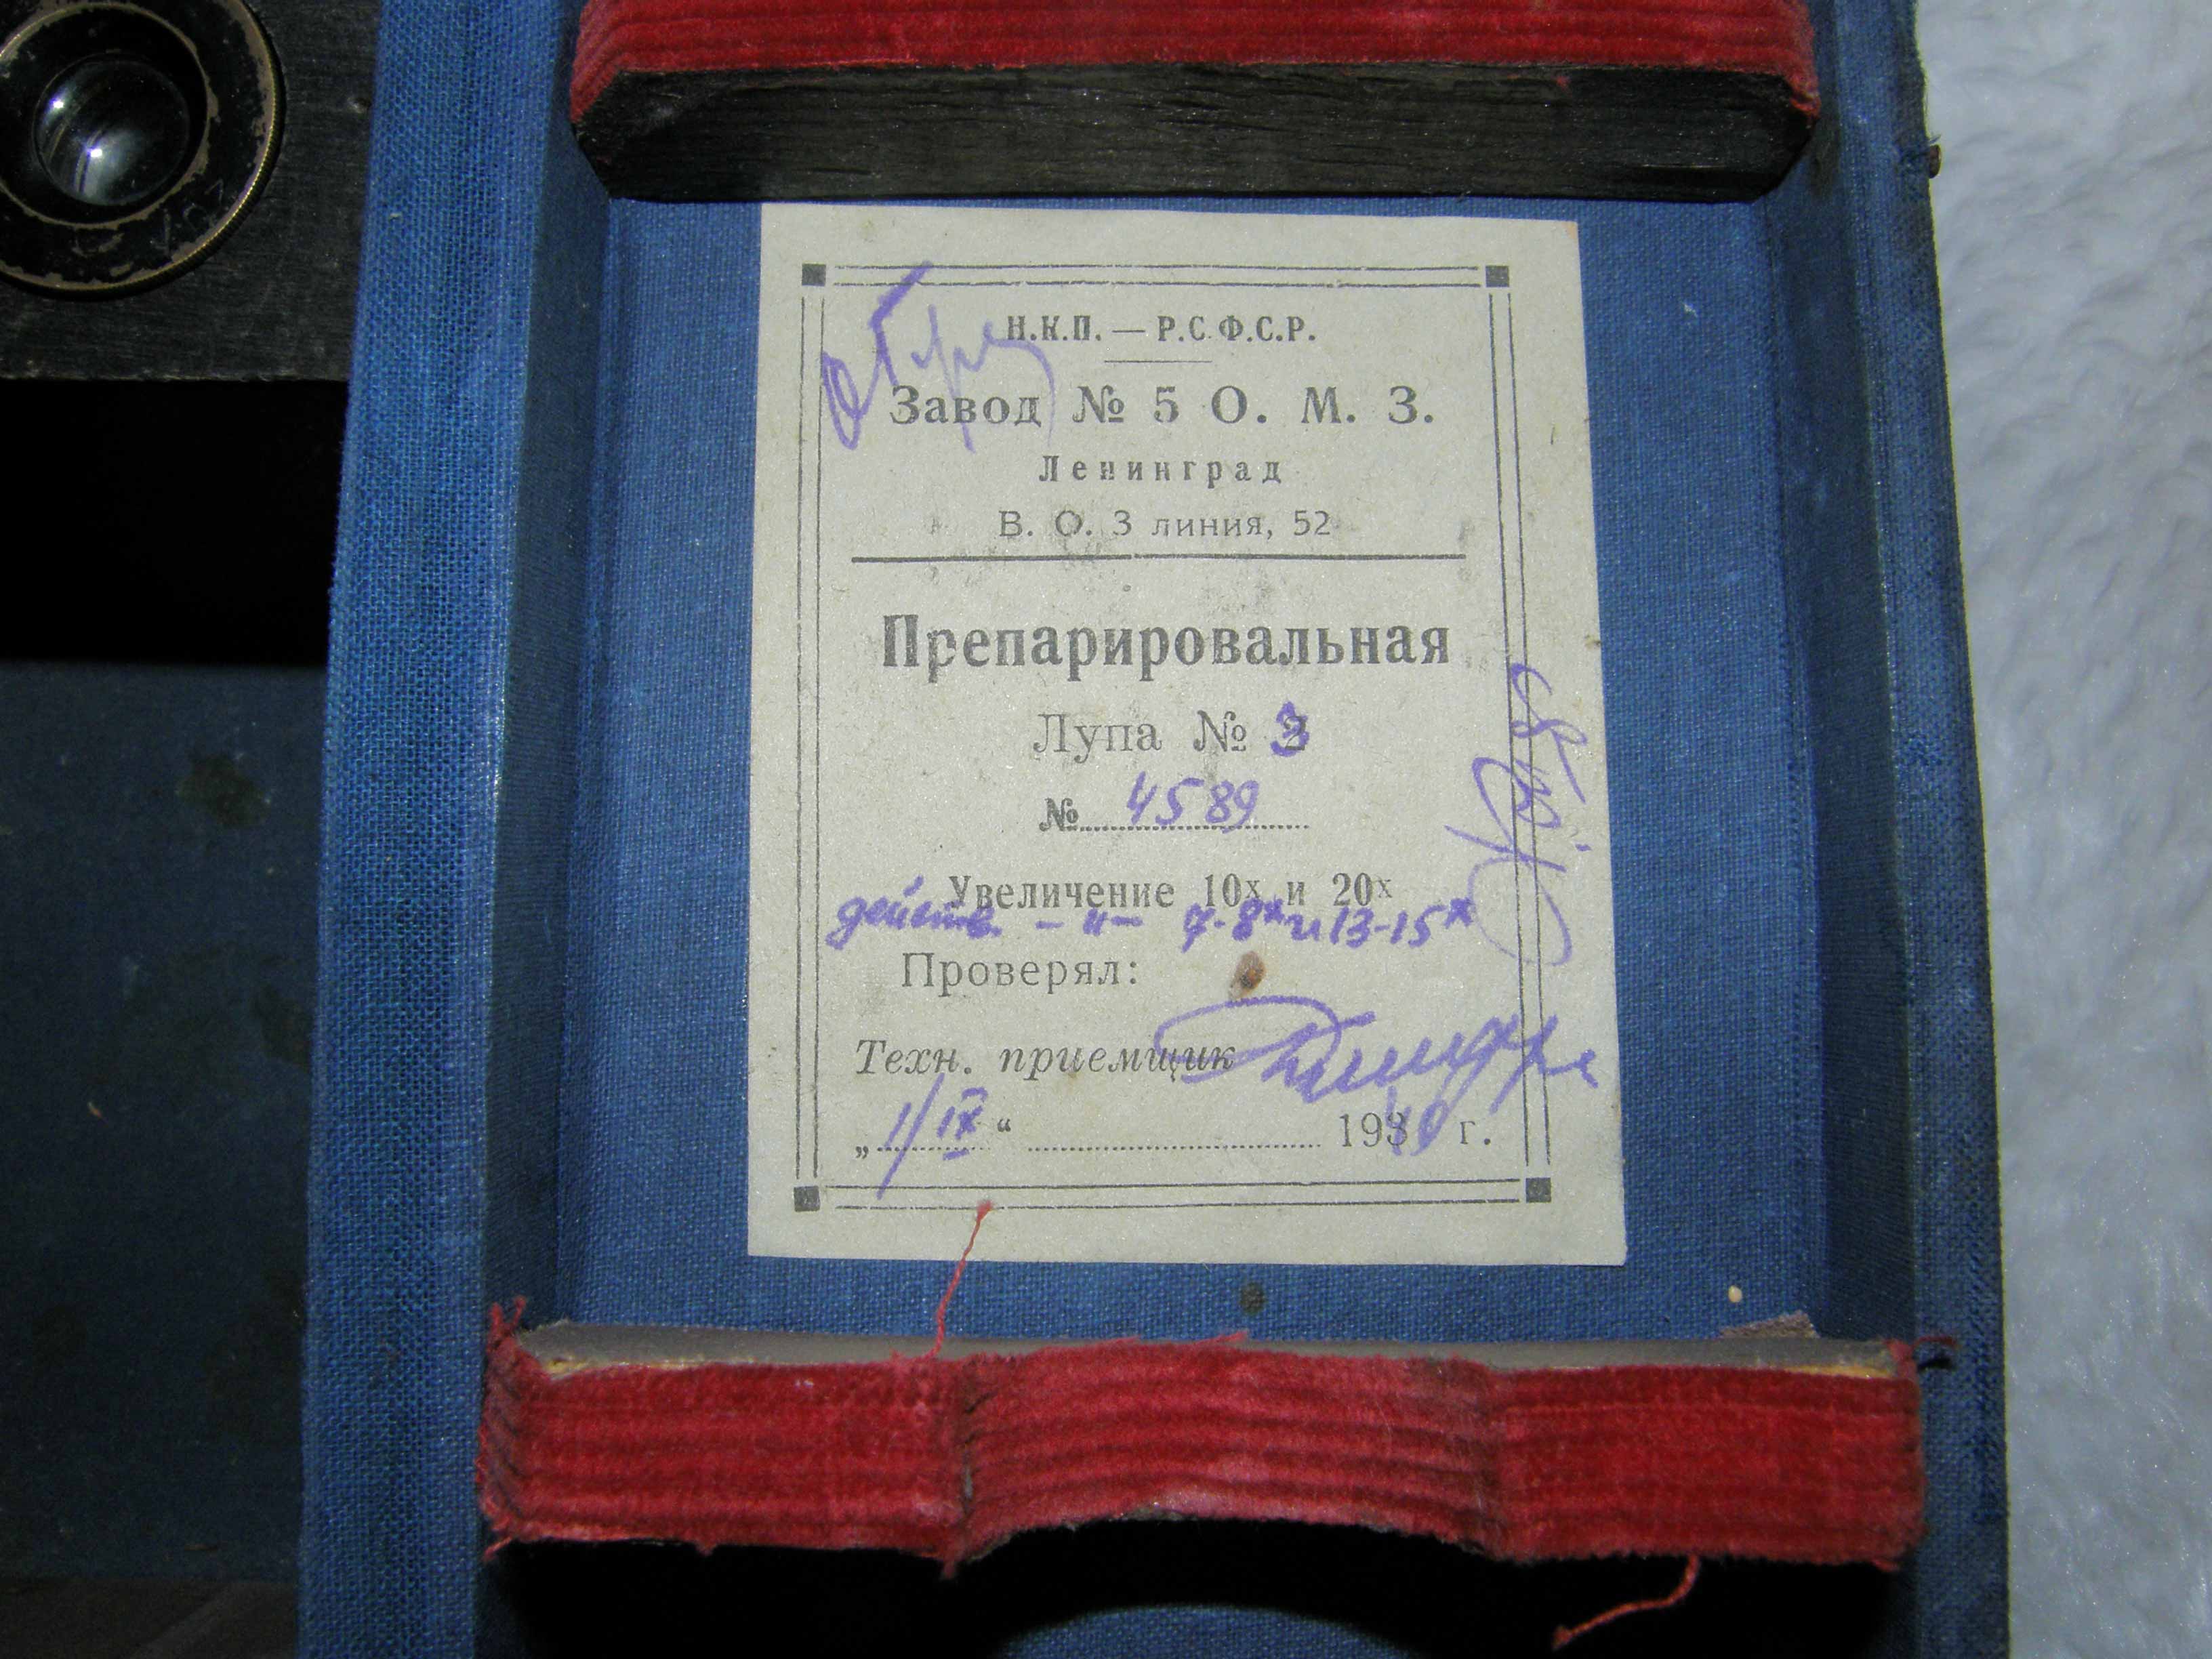 Н.К.П. — Р.С.Ф.С.Р.
Завод № 5 О. М. З.
Ленинград
В. О. 3 линия, 52
Препарировальная
Лупа № 3
№ 4589
Увеличение 10х и 20х
действ. -"- 7-8х и 13-15х
Проверял:
Техн. приемщик
„ 1/IX “ 1940 г.